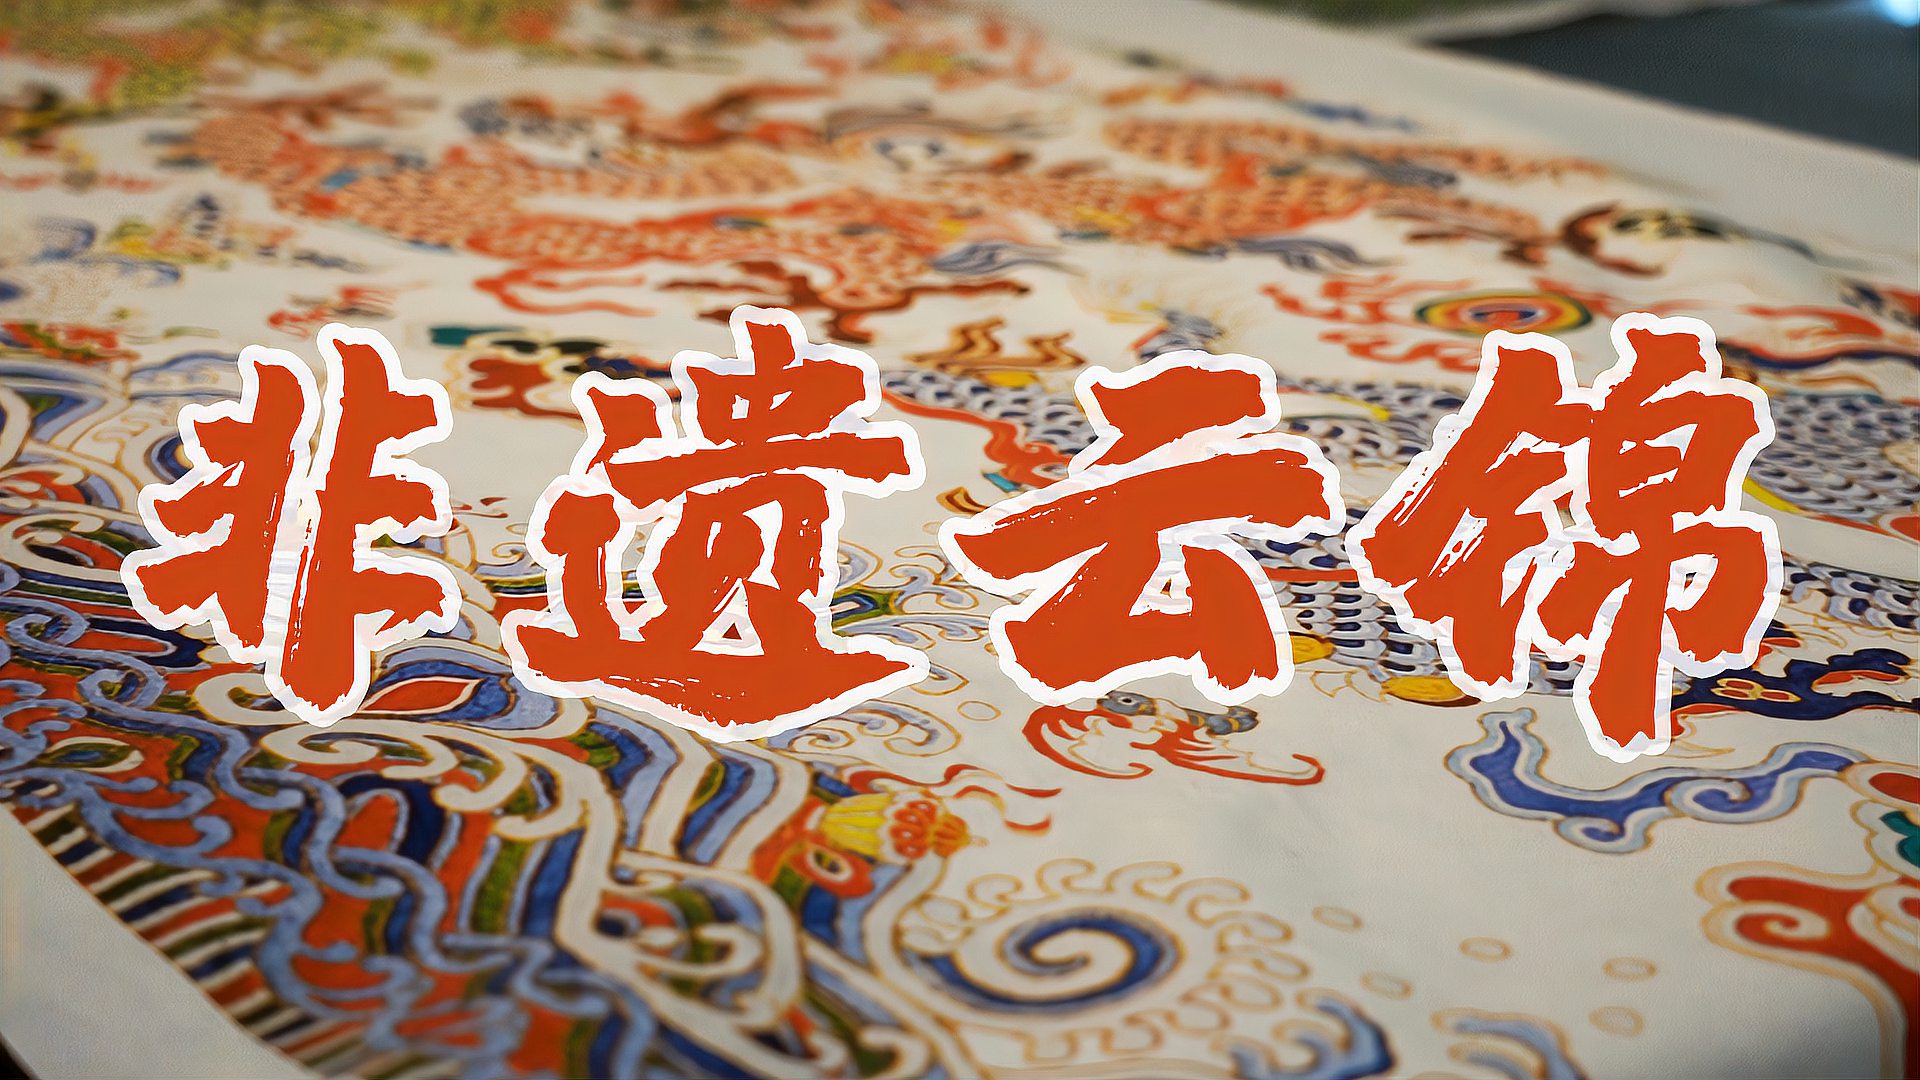 非遗云锦